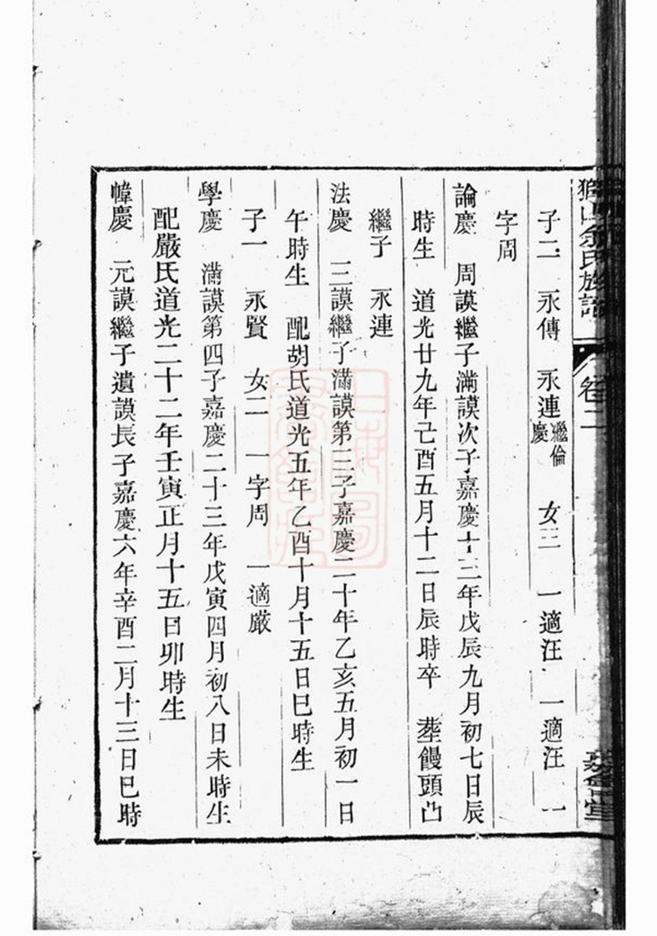 山余氏族譜 卷二
子二 永傳 永連繼倫慶 女三 一適汪 一適汪 一
字周
論慶 周謨繼子滿謨次子嘉慶十三年戊辰九月初七日辰
時生 道光廿九年己酉五月十二日辰時卒 塟饅頭凸
繼子 永連
法慶 三謨繼子滿謨第三子嘉慶二十年乙亥五月初一日
午時生 配胡氏道光五年乙酉十月十五日巳時生
子一 永賢 女二 一字周 一適嚴
學慶 滿謨第四子嘉慶二十三年戊寅四月初八日未時生
配嚴氏道光二十二年壬寅正月十五日卯時生
幃慶 元謨繼子遺謨長子嘉慶六年辛酉二月十三日巳時